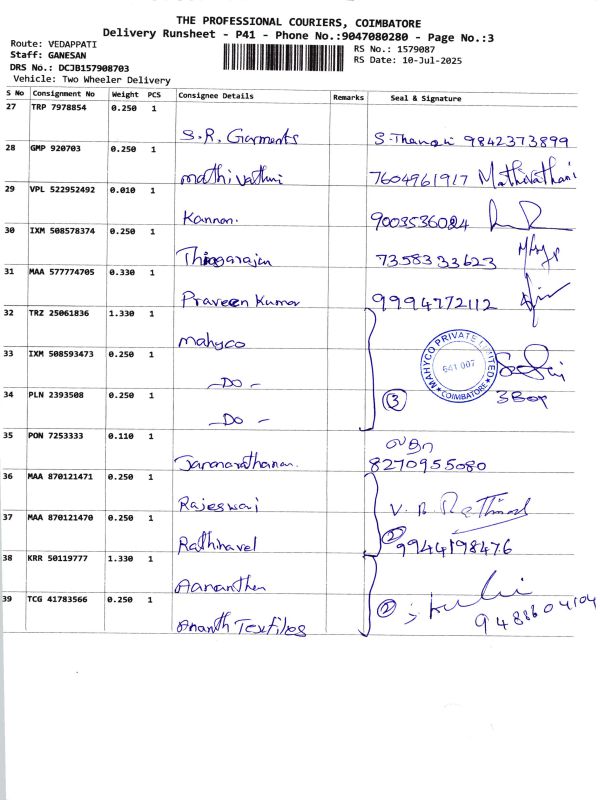 THE PROFESSIONAL COURIERS, COIMBATORE
Delivery Runsheet - P41 - Phone No.:9047080280 - Page No.:3
Route: VEDAPPATI
Staff: GANESAN
DRS No.: DCJB157908703
Vehicle: Two Wheeler Delivery
RS No.: 1579087
RS Date: 10-Jul-2025
S No Consignment No Weight PCS Consignee Details Remarks Seal & Signature
27 TRP 7978854 0.250 1
S.R. Garments 9842373899
28 GMP 920703 0.250 1
mathivathni 7604961917 Mathivathani
29 VPL 522952492 0.010 1
Kannan. 9003536024
30 IXM 508578374 0.250 1
Thiagarajan 7358333623
31 MAA 577774705 0.330 1
Praveen Kumar 9994772112
32 TRZ 25061836 1.330 1
mahyco
33 IXM 508593473 0.250 1
-Do-
MAHYCO PRIVATE LIMITED
641 007
COIMBATORE
34 PLN 2393508 0.250 1
-Do- 3 3 Box
35 PON 7253333 0.110 1
லதா
8270955080
36 MAA 870121471 0.250 1
Rajeswari
37 MAA 870121470 0.250 1
Rathinavel 2 9944198476
38 KRR 50119777 1.330 1
39 TCG 41783566 0.250 1
Ananth Textiles 2 9488604104